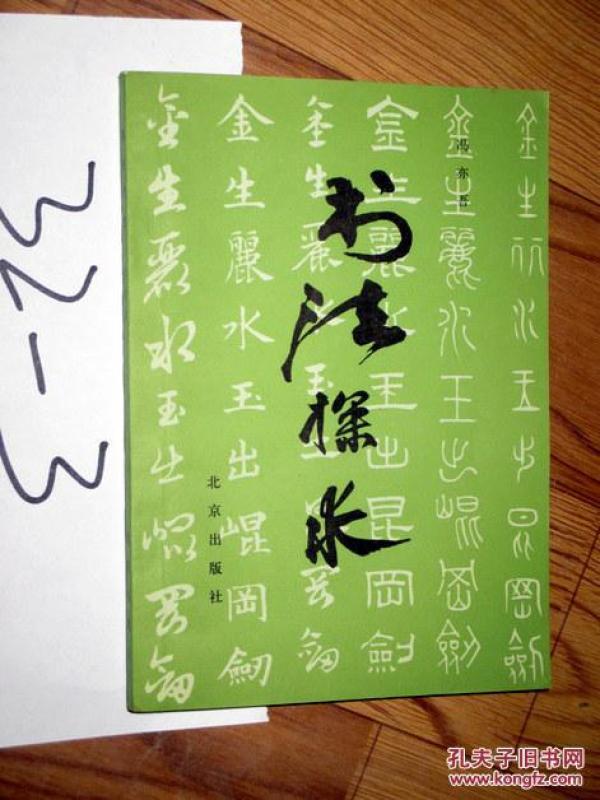 32-3
冯亦吾
书法探求
北京出版社
金生丽水玉出昆岡劍
金生麗水玉出崐岡劍
金生麗水玉出昆岡劍
金生麗水玉出崐岡劍
金生麗水玉出崐岡劍
金生麗水玉出崐岡劍
孔夫子旧书网
www.kongfz.com